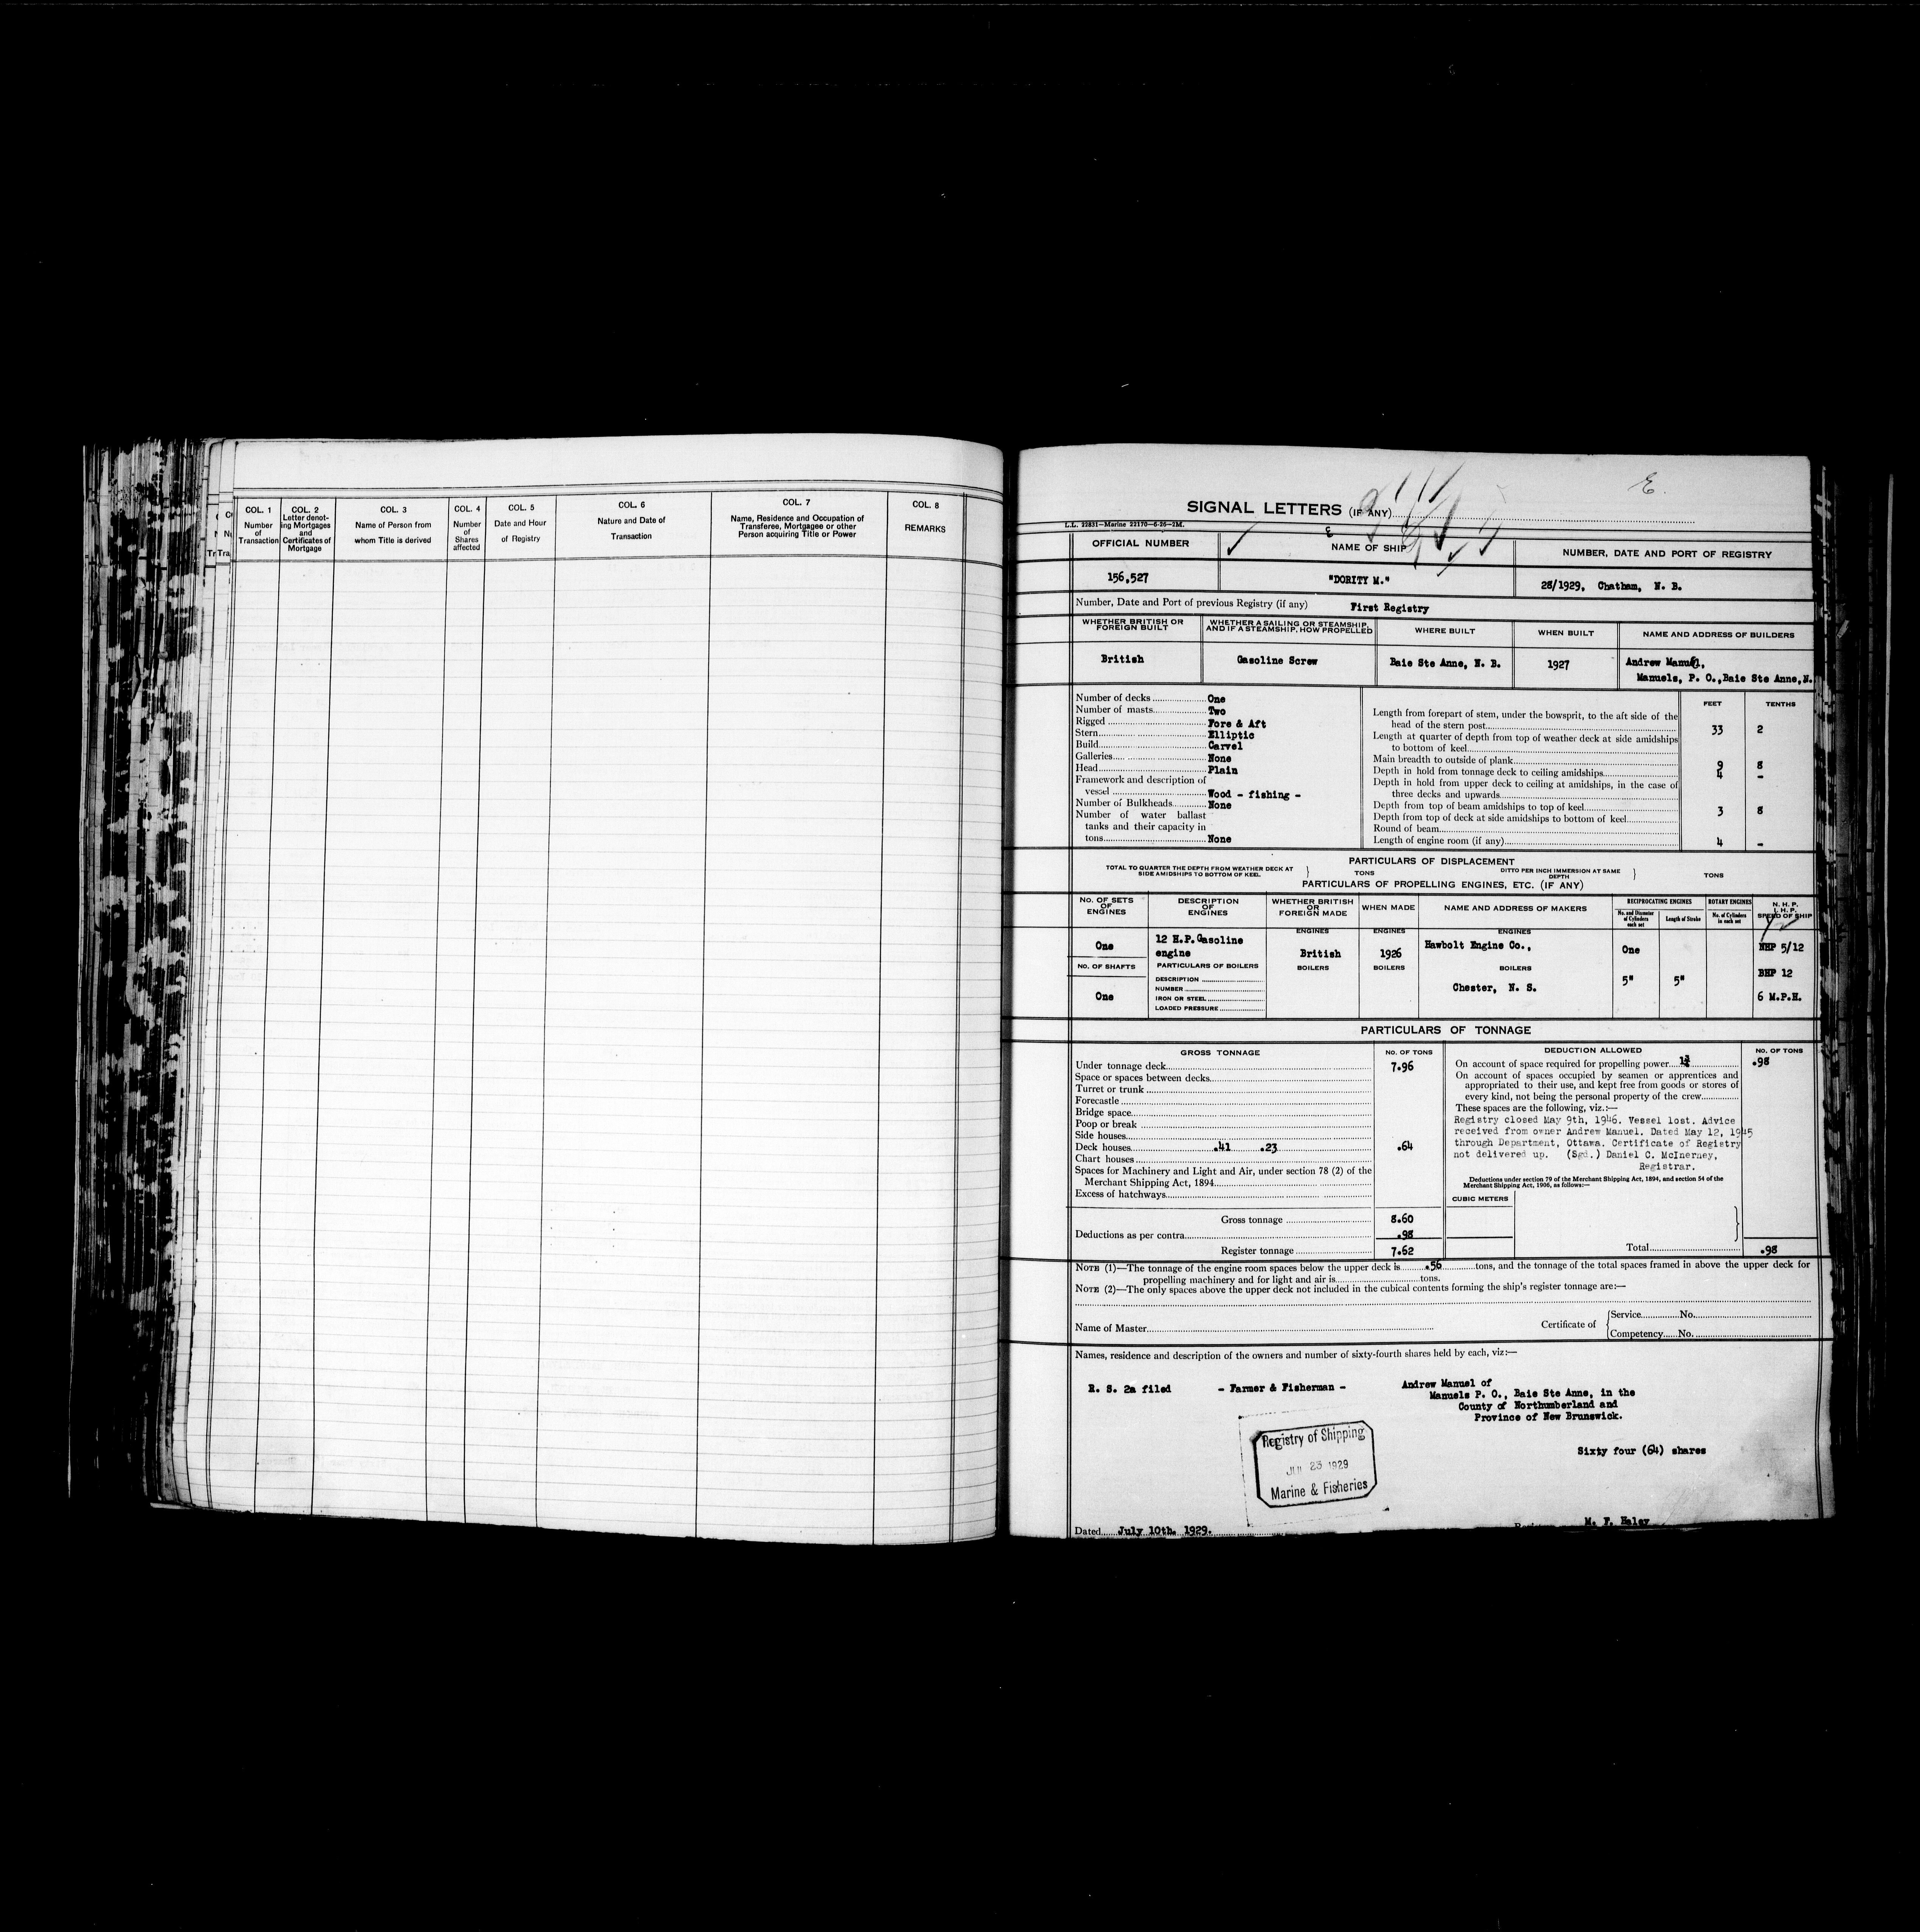 COL. 1
Number
of
Transaction
COL. 2
Letter denot-
ing Mortgages
and
Certificates of
Mortgage
COL. 3
Name of Person from
whom Title is derived
COL. 4
Number
of
Shares
affected
COL. 5
Date and Hour
of Registry
COL. 6
Nature and Date of
Transaction
COL. 7
Name, Residence and Occupation of
Transferee, Mortgagee or other
Person acquiring Title or Power
COL. 8
REMARKS
E.
SIGNAL LETTERS (IF ANY)
L.L. 22831—Marine 22170—6-26—2M.
OFFICIAL NUMBER
NAME OF SHIP
NUMBER, DATE AND PORT OF REGISTRY
156,527
"DORITY M."
28/1929, Chatham, N. B.
Number, Date and Port of previous Registry (if any) First Registry
WHETHER BRITISH OR
FOREIGN BUILT
WHETHER A SAILING OR STEAMSHIP,
AND IF A STEAMSHIP, HOW PROPELLED
WHERE BUILT
WHEN BUILT
NAME AND ADDRESS OF BUILDERS
British
Gasoline Screw
Baie Ste Anne, N. B.
1927
Andrew Manuel,
Manuels, P. O., Baie Ste Anne, N.
Number of decks One
Number of masts Two
Rigged Fore & Aft
Stern Elliptic
Build Carvel
Galleries None
Head Plain
Framework and description of
vessel Wood - fishing -
Number of Bulkheads None
Number of water ballast
tanks and their capacity in
tons None
FEET TENTHS
Length from forepart of stem, under the bowsprit, to the aft side of the
head of the stern post 33 2
Length at quarter of depth from top of weather deck at side amidships
to bottom of keel
Main breadth to outside of plank 9 8
Depth in hold from tonnage deck to ceiling amidships 4 -
Depth in hold from upper deck to ceiling at amidships, in the case of
three decks and upwards
Depth from top of beam amidships to top of keel 3 8
Depth from top of deck at side amidships to bottom of keel
Round of beam
Length of engine room (if any) 4 -
PARTICULARS OF DISPLACEMENT
TOTAL TO QUARTER THE DEPTH FROM WEATHER DECK AT
SIDE AMIDSHIPS TO BOTTOM OF KEEL.
TONS
DITTO PER INCH IMMERSION AT SAME
DEPTH
TONS
PARTICULARS OF PROPELLING ENGINES, ETC. (IF ANY)
NO. OF SETS
OF
ENGINES
DESCRIPTION
OF
ENGINES
WHETHER BRITISH
OR
FOREIGN MADE
WHEN MADE
NAME AND ADDRESS OF MAKERS
RECIPROCATING ENGINES
No. and Diameter
of Cylinders
each set
Length of Stroke
ROTARY ENGINES
No. of Cylinders
in each set
N. H. P.
I. H. P.
SPEED OF SHIP
One
12 H.P. Gasoline
engine
ENGINES
British
ENGINES
1926
ENGINES
Hawbolt Engine Co.,
One
NHP 5/12
NO. OF SHAFTS
PARTICULARS OF BOILERS
BOILERS
BOILERS
BOILERS
One
DESCRIPTION
NUMBER
IRON OR STEEL
LOADED PRESSURE
Chester, N. S.
5"
5"
BHP 12
6 M.P.H.
PARTICULARS OF TONNAGE
GROSS TONNAGE
NO. OF TONS
Under tonnage deck 7.96
Space or spaces between decks
Turret or trunk
Forecastle
Bridge space
Poop or break
Side houses
Deck houses .41 .23 .64
Chart houses
Spaces for Machinery and Light and Air, under section 78 (2) of the
Merchant Shipping Act, 1894
Excess of hatchways
Gross tonnage 8.60
Deductions as per contra .98
Register tonnage 7.62
DEDUCTION ALLOWED
NO. OF TONS
On account of space required for propelling power .98
On account of spaces occupied by seamen or apprentices and
appropriated to their use, and kept free from goods or stores of
every kind, not being the personal property of the crew
These spaces are the following, viz.:—
Registry closed May 9th, 1946. Vessel lost. Advice
received from owner Andrew Manuel. Dated May 12, 1945
through Department, Ottawa. Certificate of Registry
not delivered up. (Sgd.) Daniel C. McInerney,
Registrar.
Deductions under section 79 of the Merchant Shipping Act, 1894, and section 54 of the
Merchant Shipping Act, 1906, as follows:—
CUBIC METERS
Total .98
NOTE (1)—The tonnage of the engine room spaces below the upper deck is .56 tons, and the tonnage of the total spaces framed in above the upper deck for
propelling machinery and for light and air is tons.
NOTE (2)—The only spaces above the upper deck not included in the cubical contents forming the ship's register tonnage are:—
Name of Master
Certificate of
Service No.
Competency No.
Names, residence and description of the owners and number of sixty-fourth shares held by each, viz:—
R. S. 2a filed - Farmer & Fisherman -
Andrew Manuel of
Manuels P. O., Baie Ste Anne, in the
County of Northumberland and
Province of New Brunswick.
Sixty four (64) shares
Registry of Shipping
JUL 23 1929
Marine & Fisheries
Dated July 10th. 1929.
M. F. Haley